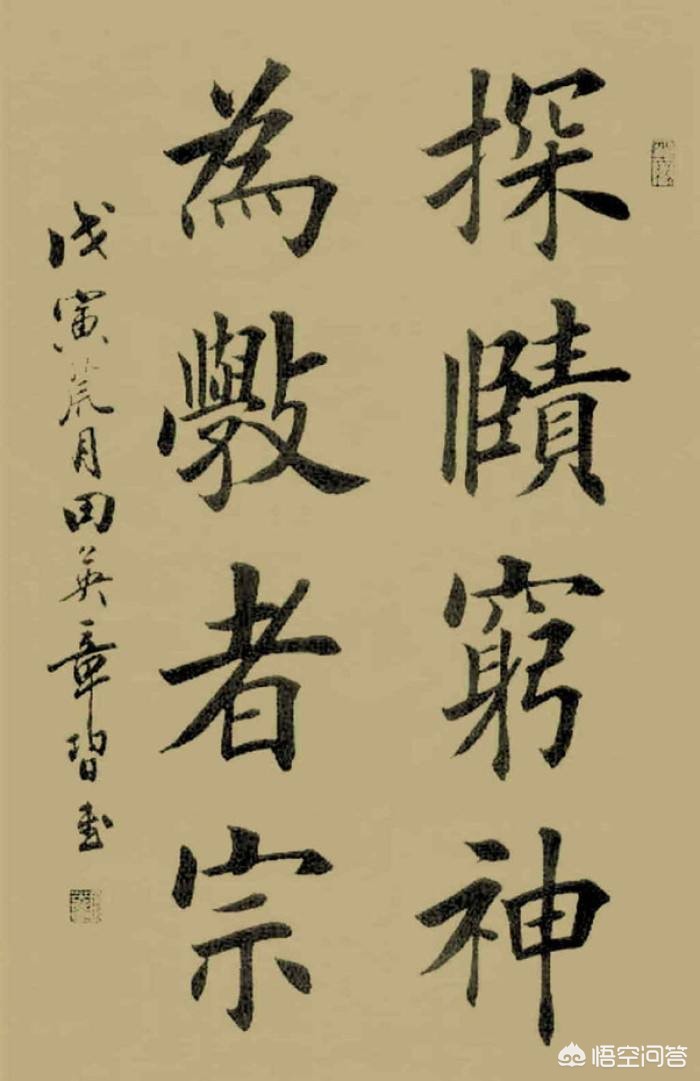 探賾窮神
為斆者宗
戊寅荒月田英章習書
悟空问答